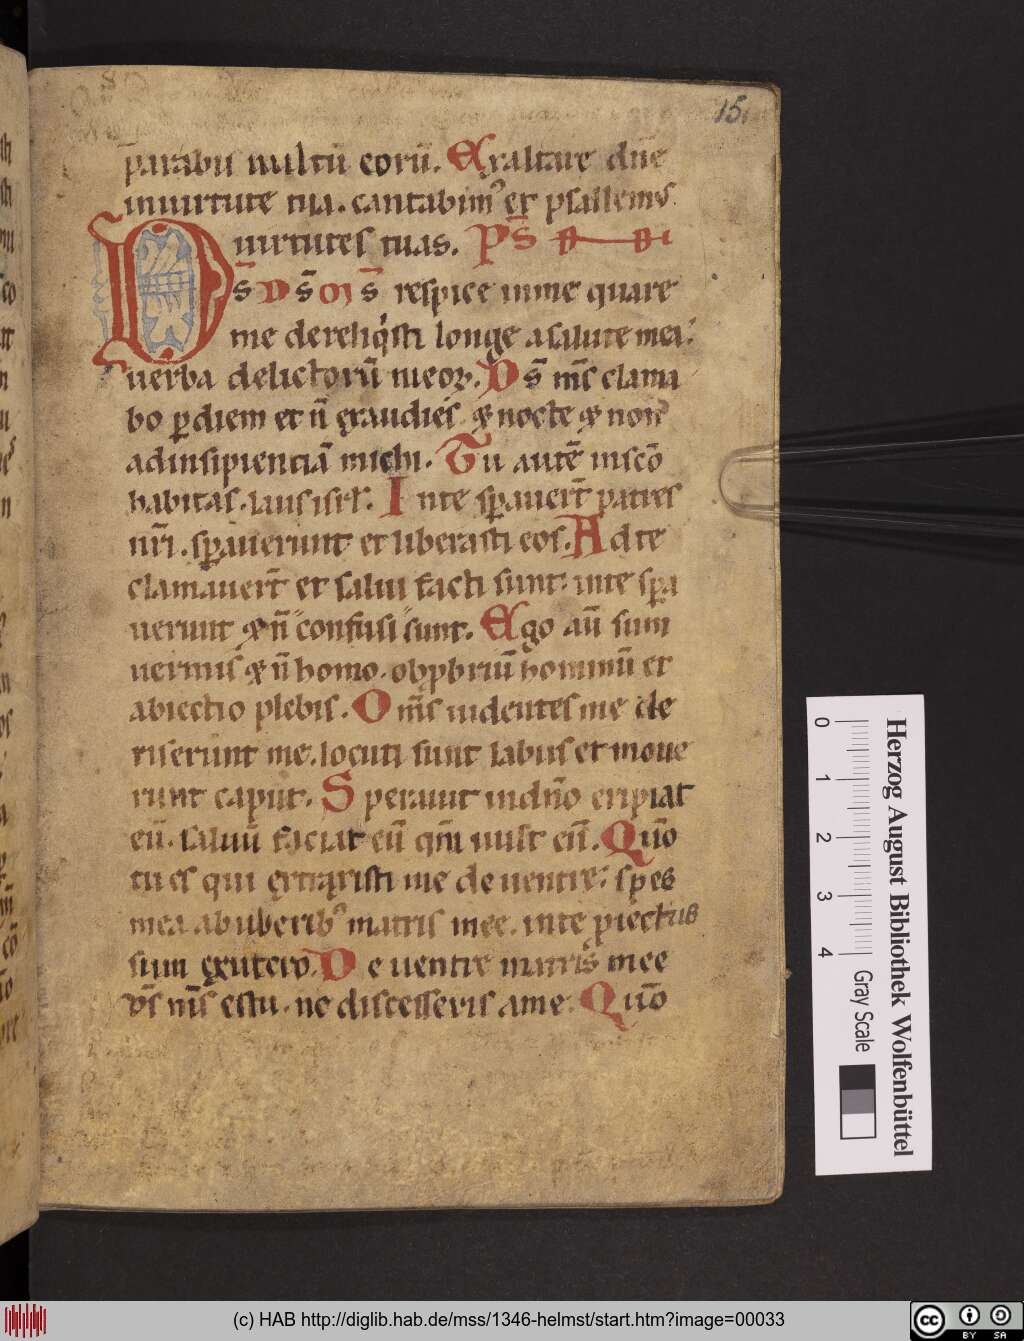 15.
p̄parabis uultū eorū. Exaltare dn̄e
inuirtute tua. cantabimꝰ et psallemꝰ
uirtutes tuas. Ps̄
D s̄ D s̄ m s̄ respice inme quare
me dereliqͥsti longe asalute mea.
uerba delictorū meoꝝ. Ds̄ ms̄ clama
bo ꝑdiem et n̄ exaudies. & nocte & non
adinsipientiā michi. Tu autē insc̄o
habitas. laus isrl̄. Inte sꝑauer̄t patres
nr̄i. sꝑauerunt et liberasti eos. Adte
clamauer̄t et salui facti sunt. inte sꝑa
uerunt & n̄ confusi sunt. Ego aū sum
uermis & n̄ homo. obpbriū hominū et
abiectio plebis. Oms̄ uidentes me de
riserunt me. locuti sunt labiis et moue
runt caput. Sperauit indn̄o eripiat
eū. saluū faciat eū qm̄ uult eū. Quō
tu es qui extraxisti me deuentre. spes
mea abuberibꝰ matris mee. inte piectus
sum exutero. De uentre matris mee
ds̄ ms̄ estu. ne discesseris ame. Quō
Herzog August Bibliothek Wolfenbüttel
0 1 2 3 4 Gray Scale
(c) HAB http://diglib.hab.de/mss/1346-helmst/start.htm?image=00033
cc BY SA